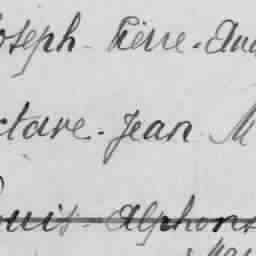 oseph - Pierre - And
ctave - Jean M
ouis - Alphons